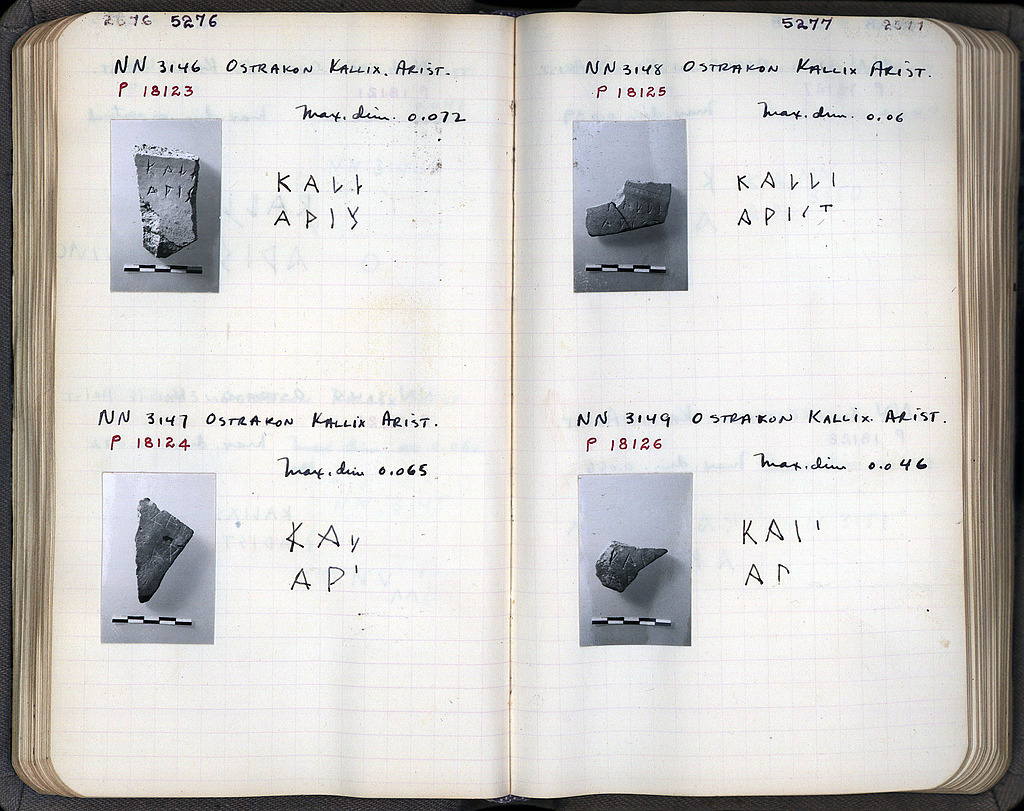 2576 5276
NN 3146 OSTRAKON KALLIX. ARIST.
P 18123
Max. dim. 0.072
ΚΑLI
ΑΡΙ
NN 3147 OSTRAKON KALLIX. ARIST.
P 18124
Max. dim 0.065
ΚΑ
ΑΡ
5277 2577
NN 3148 OSTRAKON KALLIX ARIST.
P 18125
Max. dim. 0.06
ΚΑLLI
ΑΡΙSΤ
NN 3149 OSTRAKON KALLIX. ARIST.
P 18126
Max. dim 0.046
ΚΑL
ΑΡ